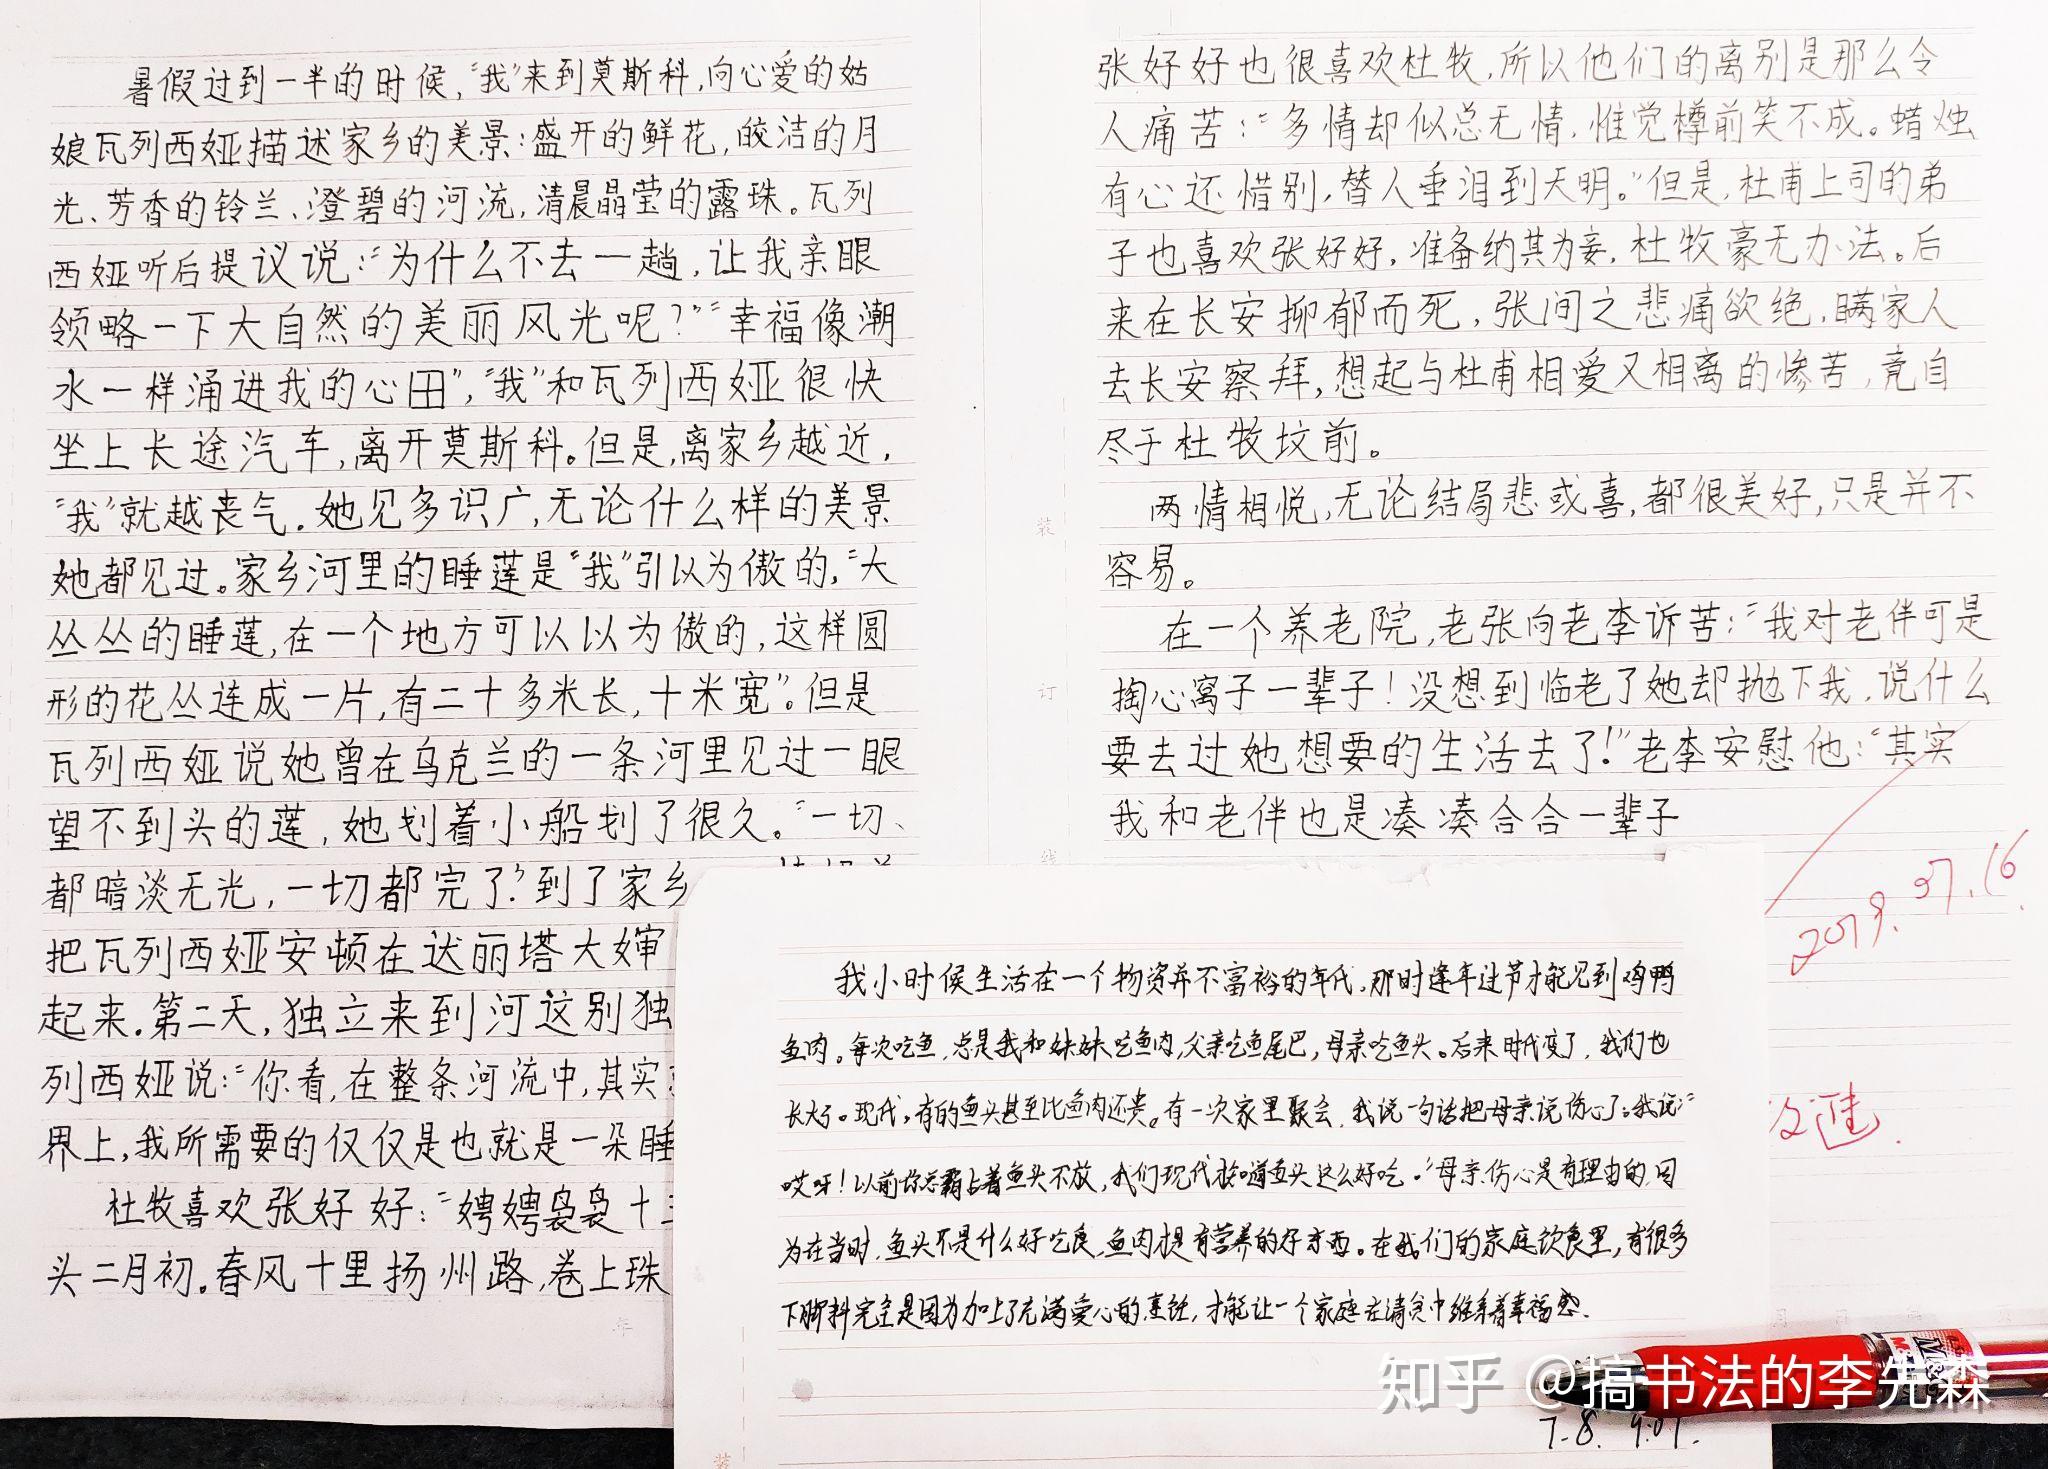 暑假过到一半的时候,“我”来到莫斯科,向心爱的姑
娘瓦列西娅描述家乡的美景:盛开的鲜花,皎洁的月
光、芳香的铃兰、澄碧的河流,清晨晶莹的露珠。瓦列
西娅听后提议说:“为什么不去一趟,让我亲眼
领略一下大自然的美丽风光呢?”“幸福像潮
水一样涌进我的心田”,“我”和瓦列西娅很快
坐上长途汽车,离开莫斯科。但是,离家乡越近,
“我”就越丧气.她见多识广,无论什么样的美景
她都见过。家乡河里的睡莲是“我”引以为傲的,“大
丛丛的睡莲,在一个地方可以以为傲的,这样圆
形的花丛连成一片,有二十多米长,十米宽”。但是
瓦列西娅说她曾在乌克兰的一条河里见过一眼
望不到头的莲,她划着小船划了很久。“一切、
都暗淡无光,一切都完了?到了家乡
把瓦列西娅安顿在达丽塔大婶
起来.第二天,独立来到河这别独
列西娅说:“你看,在整条河流中,其实
界上,我所需要的仅仅是也就是一朵睡
杜牧喜欢张好好:“娉娉袅袅十三
头二月初。春风十里扬州路,卷上珠
张好好也很喜欢杜牧,所以他们的离别是那么令
人痛苦:“多情却似总无情,惟觉樽前笑不成。蜡烛
有心还惜别,替人垂泪到天明。”但是,杜甫上司的弟
子也喜欢张好好,准备纳其为妾,杜牧豪无办法。后
来在长安抑郁而死,张间之悲痛欲绝,瞒家人
去长安察拜,想起与杜甫相爱又相离的惨苦,竟自
尽于杜牧坟前。
两情相悦,无论结局悲或喜,都很美好,只是并不
容易。
在一个养老院,老张向老李诉苦:“我对老伴可是
掏心窝子一辈子!没想到临老了她却抛下我,说什么
要去过她想要的生活去了!”老李安慰他:“其实
我和老伴也是凑凑合合一辈子
2019.07.16
我小时候生活在一个物资并不富裕的年代,那时逢年过节才能见到鸡鸭
鱼肉。每次吃鱼,总是我和妹妹吃鱼肉,父亲吃鱼尾巴,母亲吃鱼头。后来时代变了,我们也
长大了。现代,有的鱼头甚至比鱼肉还贵。有一次家里聚会,我说一句话把母亲说伤心了。我说:“
哎呀!以前你总霸占着鱼头不放,我们现代才知道鱼头这么好吃。”母亲伤心是有理由的,因
为在当时,鱼头不是什么好吃食,鱼肉才是有营养的好东西。在我们的家庭饮食里,有很多
下脚料完全是因为加上了充满爱心的烹饪,才能让一个家庭在清贫中维系着幸福感.
7.8. 9:01.
装
订
线
年
装
知乎 @搞书法的李先森